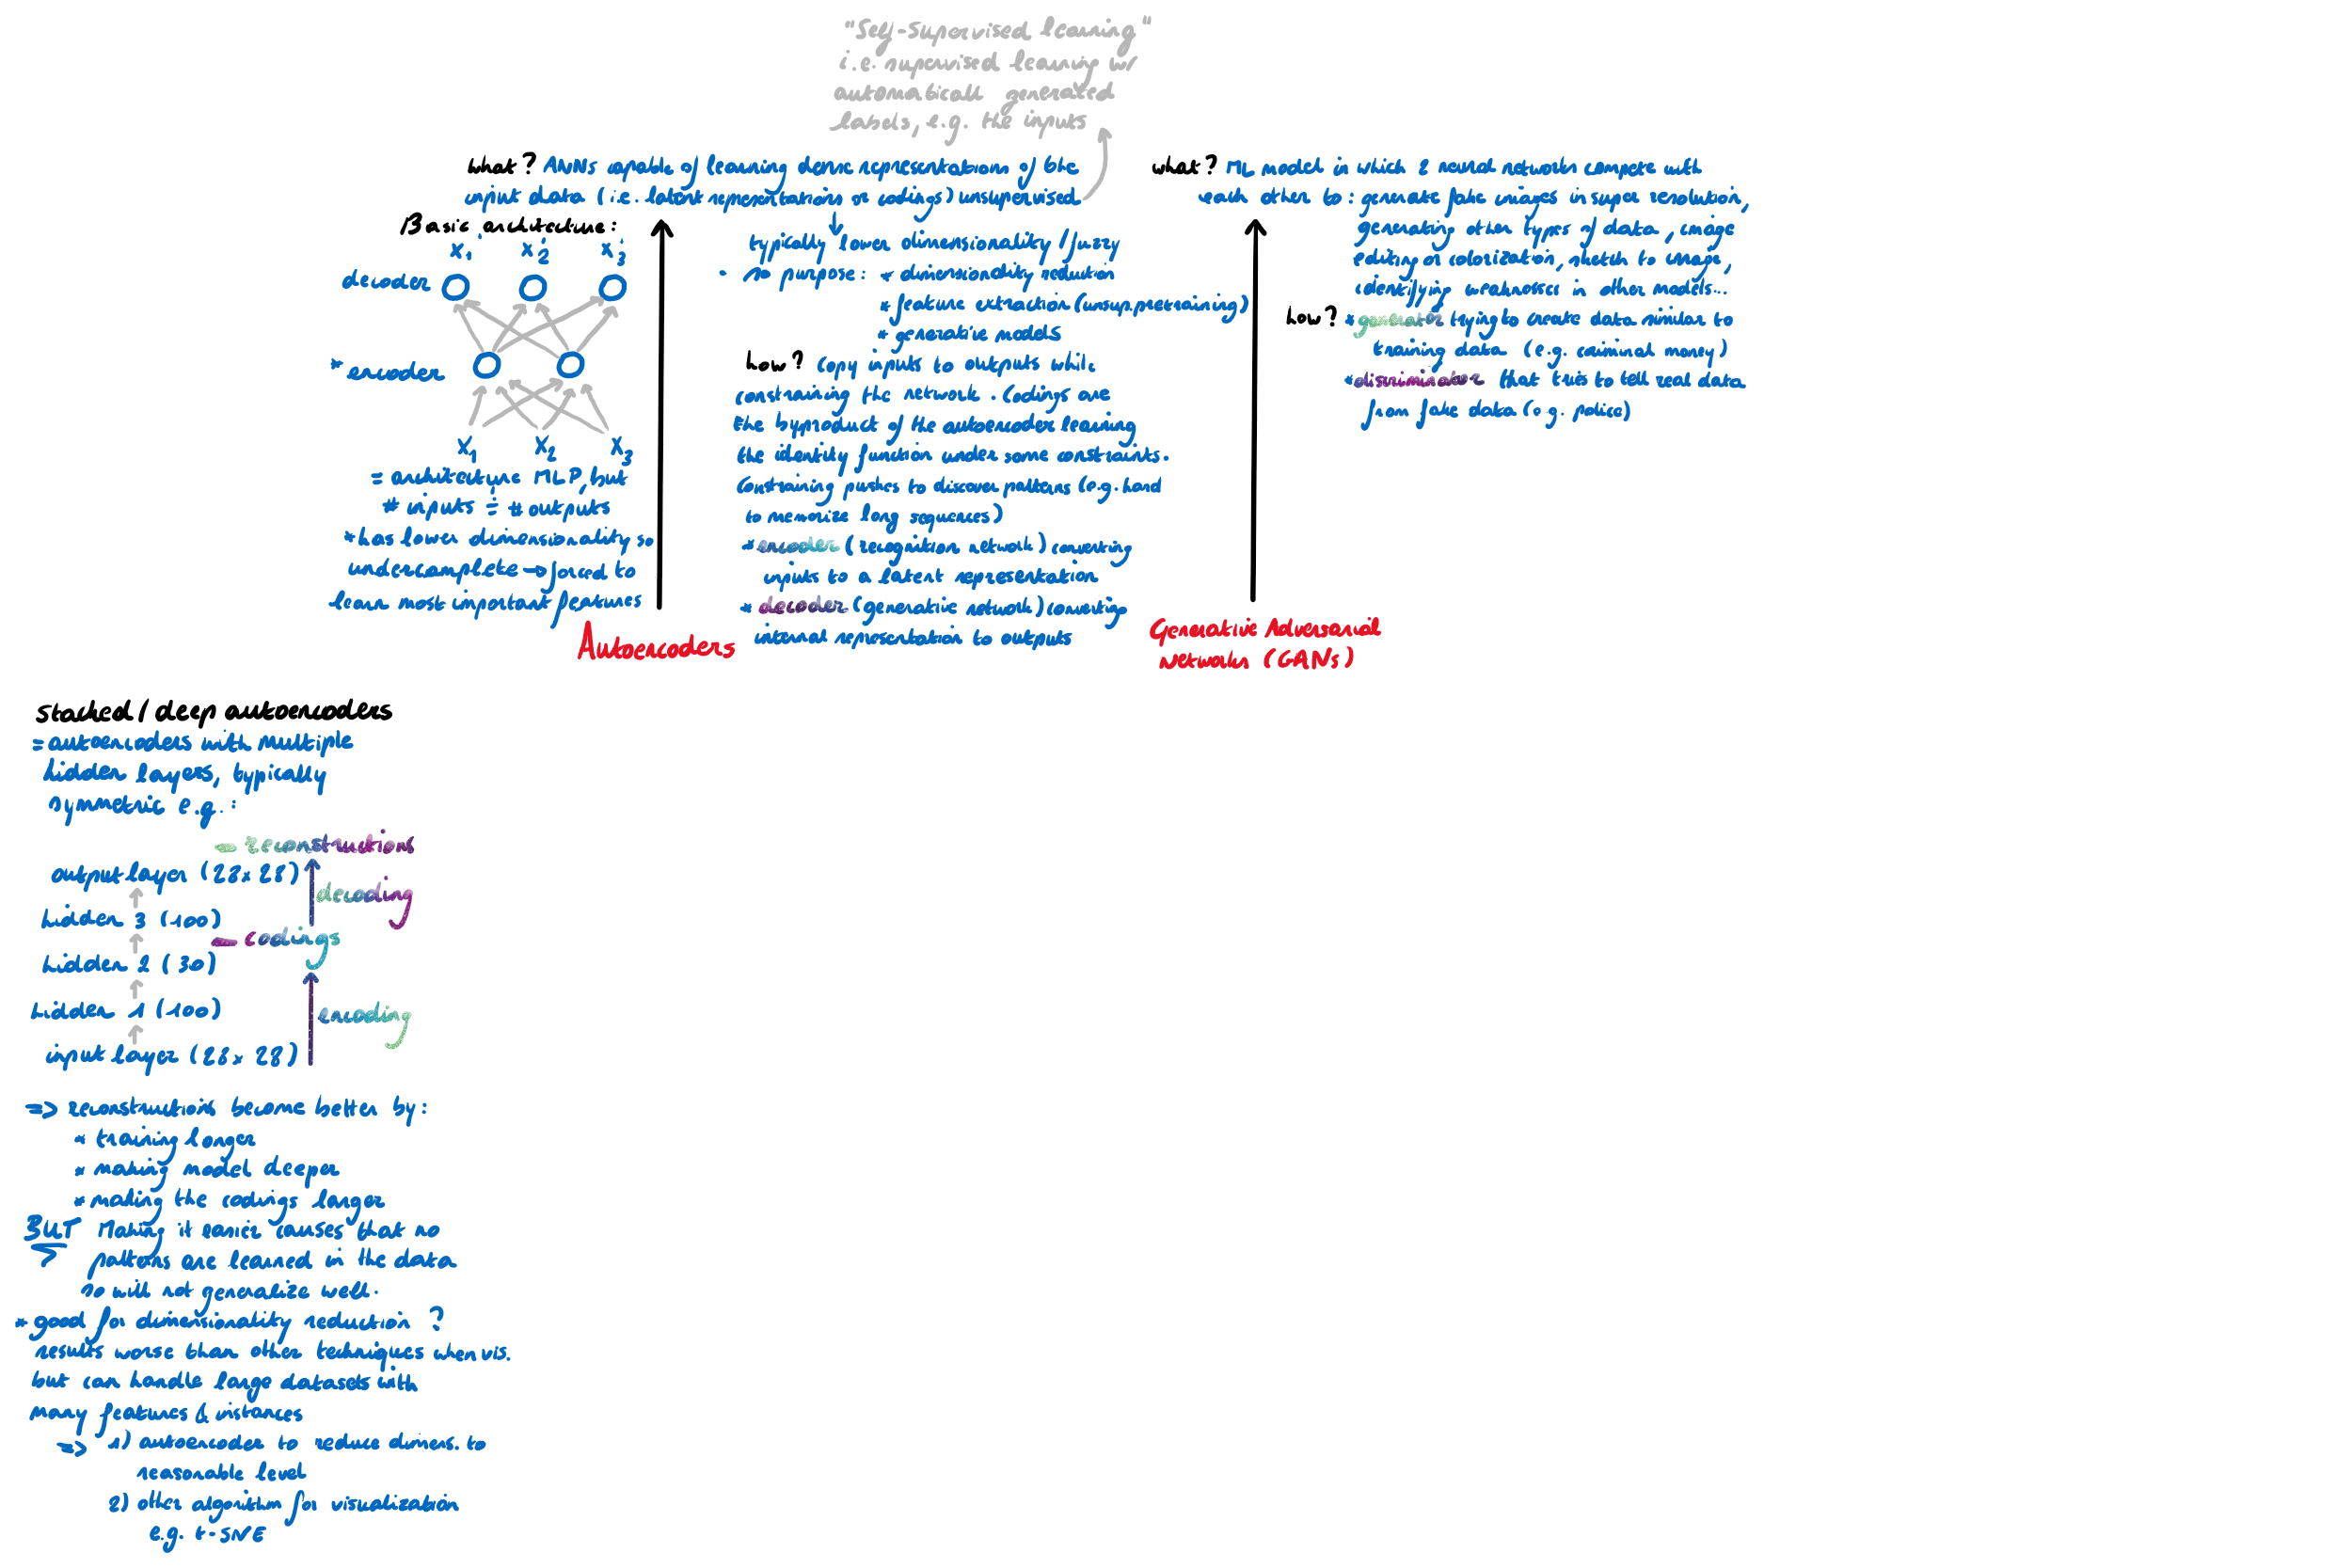 "Self-supervised learning"
i.e. supervised learning w/
automaticall generated
labels, e.g. the inputs
what? ANNs capable of learning dense representations of the
input data (i.e. latent representations or codings) unsupervised
typically lower dimensionality / fuzzy
so purpose: * dimensionality reduction
* feature extraction (unsup. pretraining)
* generative models
how? copy inputs to outputs while
constraining the network. Codings are
the byproduct of the autoencoder learning
the identity function under some constraints.
Constraining pushes to discover patterns (e.g. hard
to memorize long sequences)
* encoder (recognition network) converting
inputs to a latent representation
* decoder (generative network) converting
internal representation to outputs
Basic architecture:
x₁' x₂' x₃'
decoder
* encoder
x₁ x₂ x₃
= architecture MLP, but
# inputs = # outputs
* has lower dimensionality so
undercomplete → forced to
learn most important features
Autoencoders
what? ML model in which 2 neural networks compete with
each other to: generate fake images in super resolution,
generating other types of data, image
editing or colorization, sketch to image,
identifying weaknesses in other models...
how? * generator trying to create data similar to
training data (e.g. criminal money)
* discriminator that tries to tell real data
from fake data (e.g. police)
Generative Adversarial
Networks (GANs)
stacked / deep autoencoders
= autoencoders with multiple
hidden layers, typically
symmetric e.g.:
– reconstructions
output layer (28x28)
decoding
hidden 3 (100)
– codings
hidden 2 (30)
hidden 1 (100)
encoding
input layer (28x28)
=> reconstructions become better by:
* training longer
* making model deeper
* making the codings larger
BUT Making it easier causes that no
patterns are learned in the data
so will not generalize well.
* good for dimensionality reduction?
results worse than other techniques when vis.
but can handle large datasets with
many features & instances
=> 1) autoencoder to reduce dimens. to
reasonable level
2) other algorithm for visualization
e.g. t-SNE